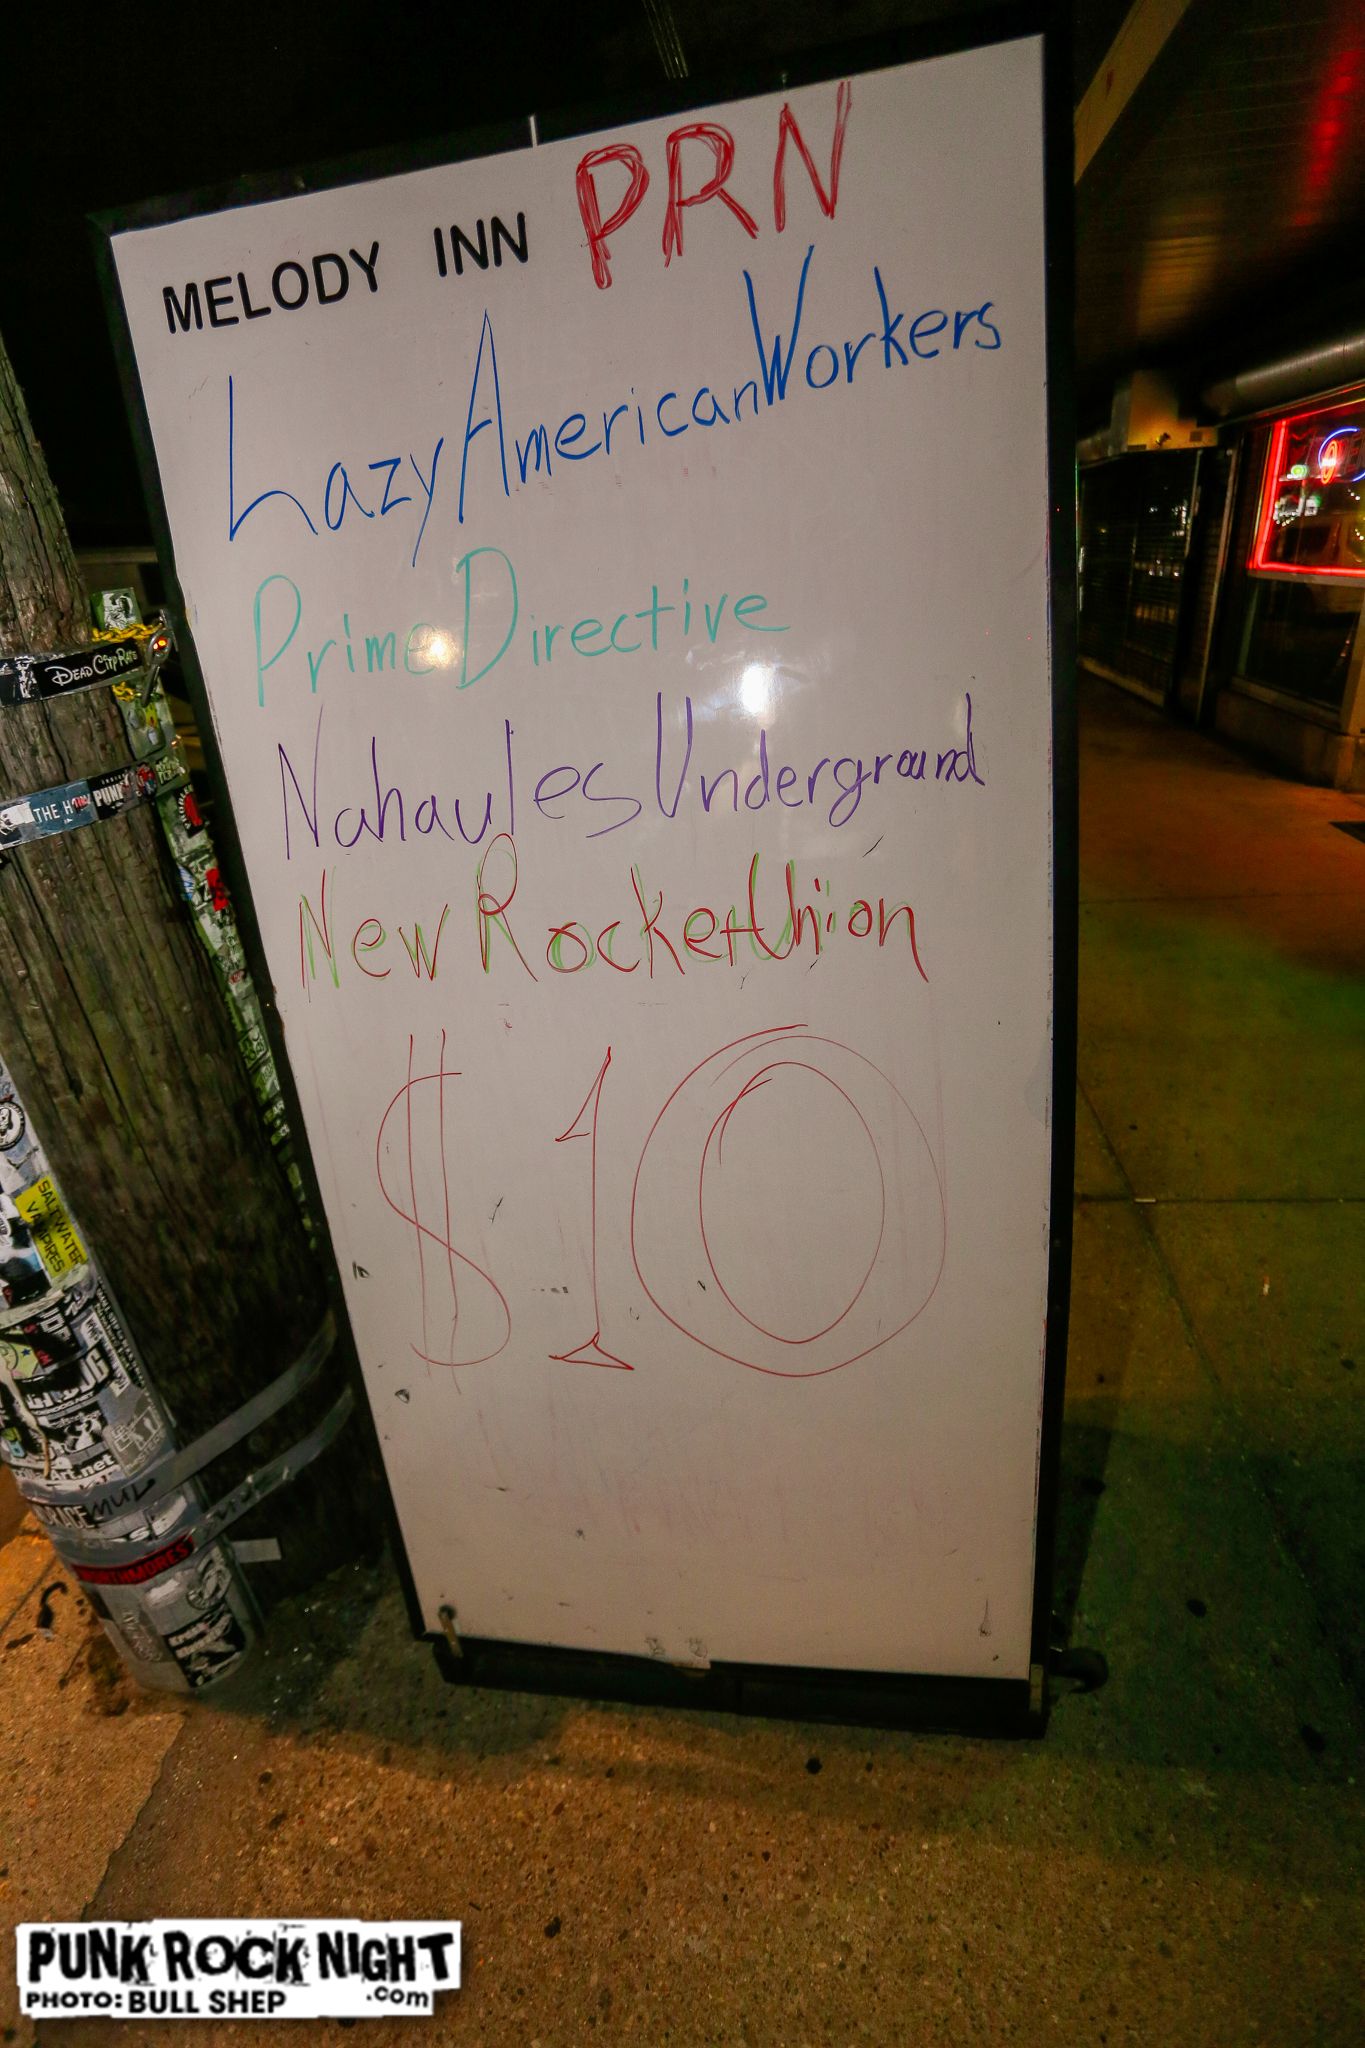 MELODY INN PRN
Lazy American Workers
Prime Directive
Nahaules Underground
New Rocket Union
$10
DEAD CITY RATS
THE
PUNK
SALTWATER
VAMPIRES
Art.net
NORTHMORES
PUNK ROCK NIGHT
.com
PHOTO: BULL SHEP